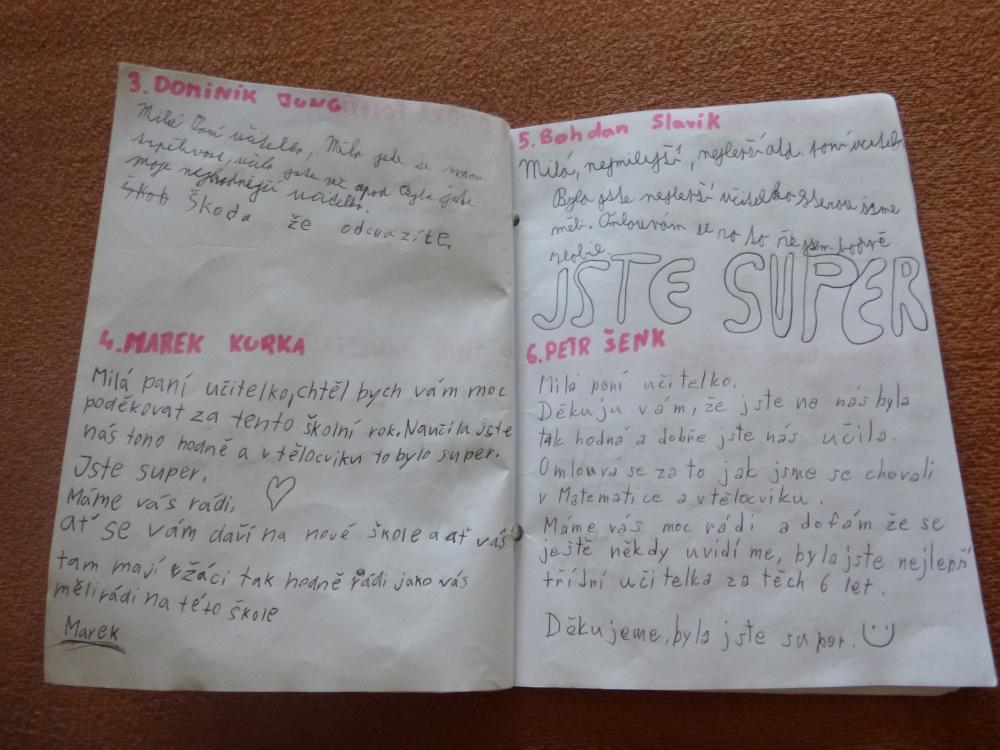 3. DOMINIK JUNG
Milá Paní učitelko, Měla jste se mnou
trpělivost, učila jste mě apod. Byla jste
moje nejhodnější učitelka.
Škob Škoda že odcházíte.
4. MAREK KURKA
Milá paní učitelko, chtěl bych vám moc
poděkovat za tento školní rok. Naučila jste
nás toho hodně a v tělocviku to bylo super.
Jste super.
Máme vás rádi.
ať se vám daří na nové škole a ať vás
tam mají žáci tak hodně rádi jako vás
měli rádi na této škole
Marek
5. Bohdan Slavík
Milá, nejmilejší, nejlepší atd. paní učitelko
Byla jste nejlepší učitelka kterou jsme
měli. Omlouvám se za to že jsem hodně
zlobil.
JSTE SUPER
6. PETR ŠENK
Milá paní učitelko.
Děkuju vám, že jste na nás byla
tak hodná a dobře jste nás učila.
Omlouvá se za to jak jsme se chovali
v Matematice a v tělocviku.
Máme vás moc rádi a dofám že se
ještě někdy uvidíme, byla jste nejlepší
třídní učitelka za těch 6 let.
Děkujeme, byla jste super.